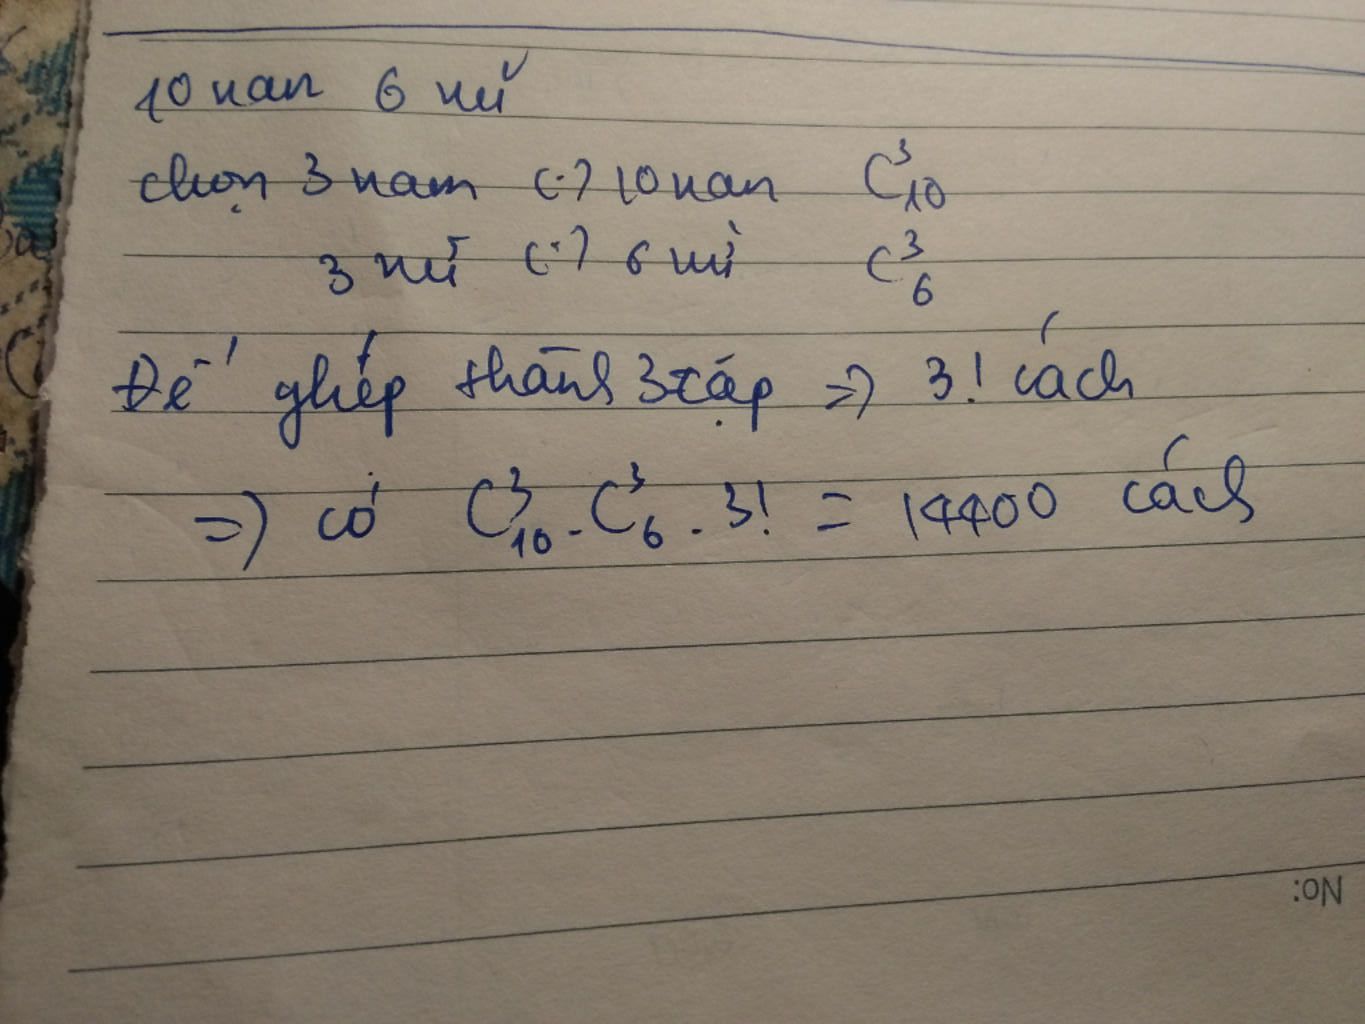 10 nam 6 nữ
chọn 3 nam (.) 10 nam C³₁₀
3 nữ (.) 6 nữ C³₆
Để ghép thành 3 cặp => 3! cách
=> có C³₁₀ . C³₆ . 3! = 14400 cách
No: